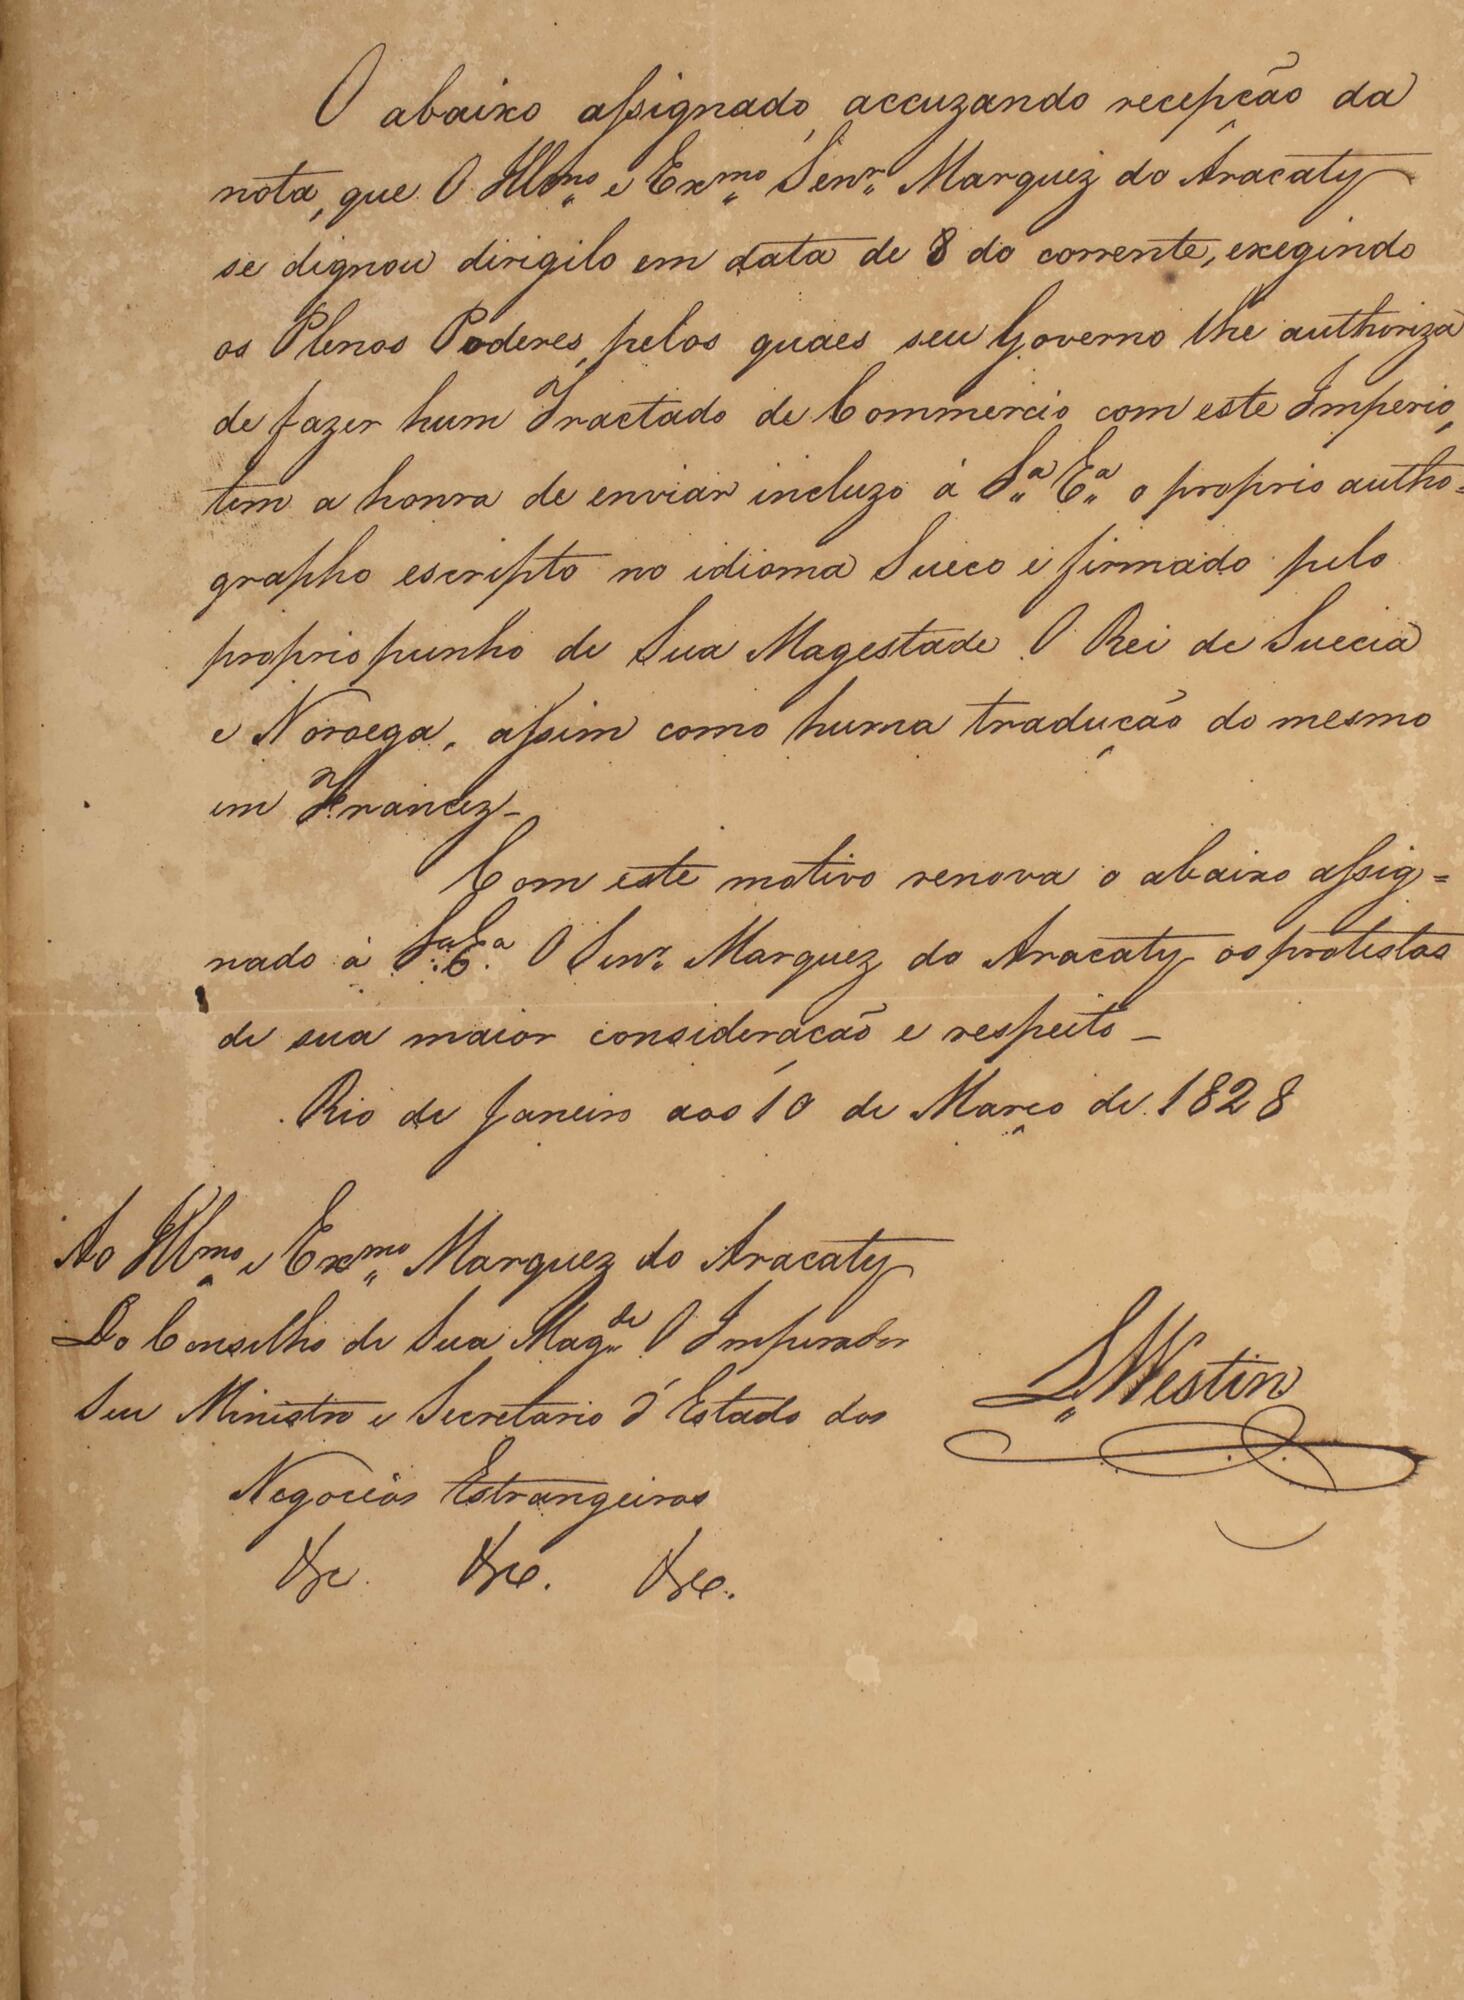 O abaixo assignado, accuzando recepção da
nota, que O Illmo e Exmo Senr Marquez do Aracaty
se dignou dirigilo em data de 8 do corrente, exegindo
os Plenos Poderes, pelos quaes seu Governo lhe authoriza
de fazer hum Tractado de Commercio com este Imperio,
tem a honra de enviar incluzo à Sa Ea o proprio autho=
grapho escripto no idioma Sueco e firmado pelo
proprio punho de Sua Magestade O Rei de Suecia
e Noroega, assim como huma tradução do mesmo
em Francez_
Com este motivo renova o abaixo assig=
nado à Sa Ea O Senr Marquez do Aracaty os protestos
de sua maior consideração e respeito _
Rio de Janeiro aos 10 de Março de 1828
Ao Illmo e Exmo Marquez do Aracaty
Do Conselho de Sua Magde O Imperador
Seu Ministro e Secretario d'Estado dos
L. Westin
Negocios Estrangeiros
&c. &c. &c.